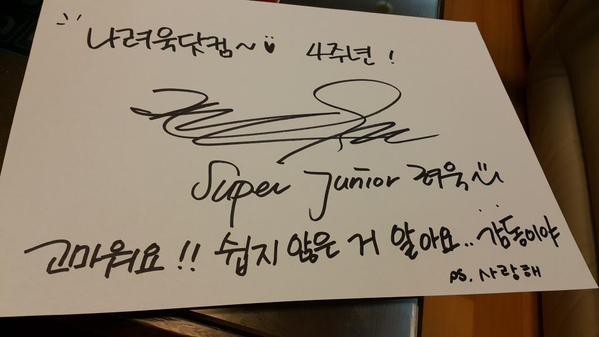 나려욱닷컴~♥ 4주년!
Super Junior 려욱
고마워요!! 쉽지 않은 거 알아요.. 감동이야
ps. 사랑해